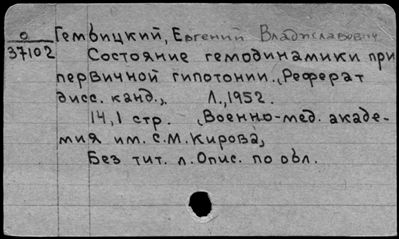 о
37102
Гембицкий, Евгений Владиславович
Состояние гемодинамики при
первичной гипотонии. (Реферат
дисс. канд.). Л., 1952.
14,1 стр. (Военно-мед. акаде-
мия им. С.М. Кирова)
Без тит. л. Опис. по обл.